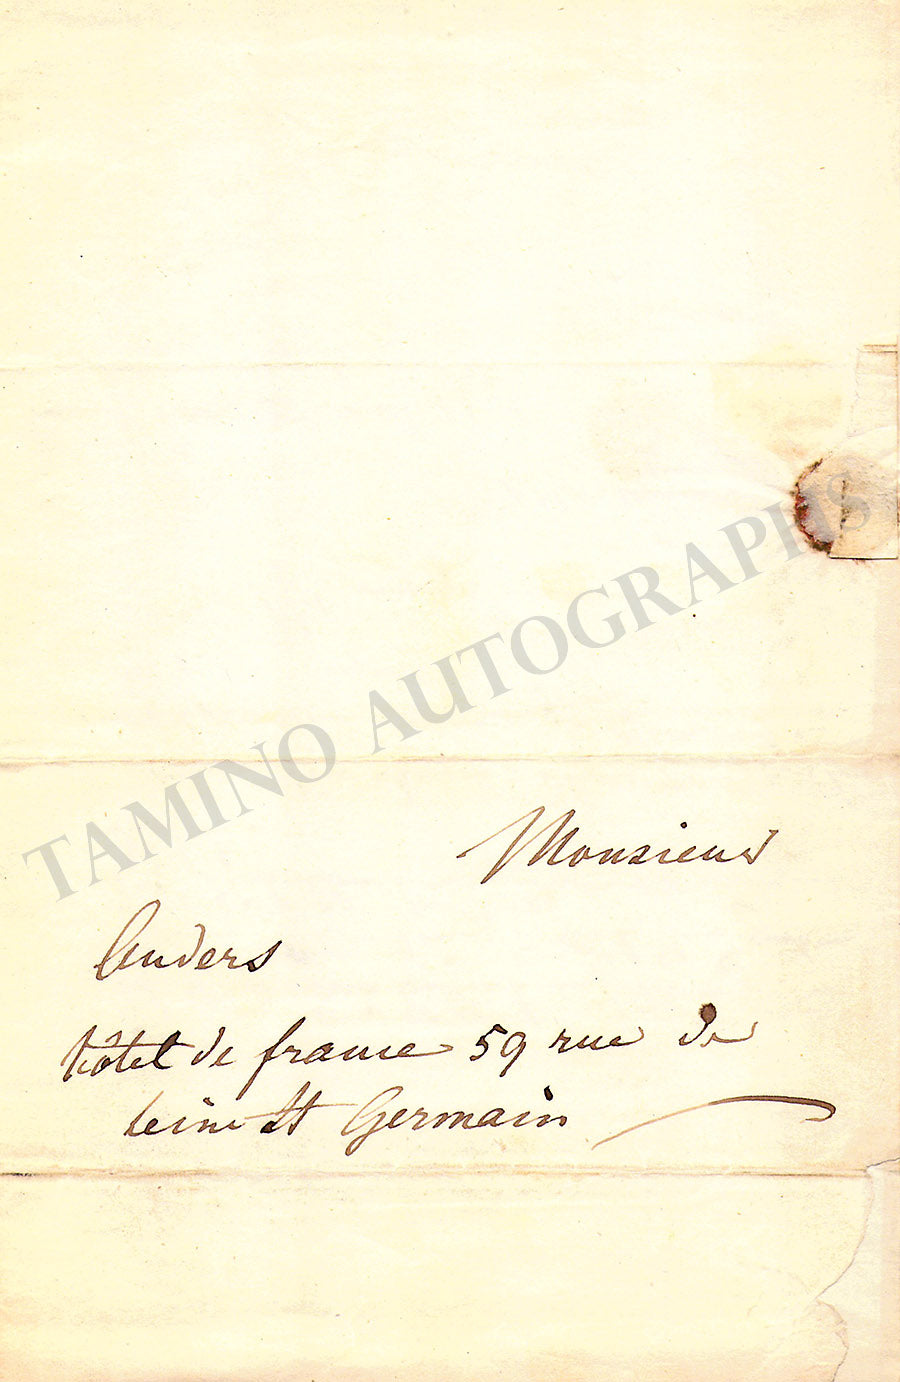 TAMINO AUTOGRAPHS
Monsieur
Anders
hôtel de france 59 rue de
seine St Germain